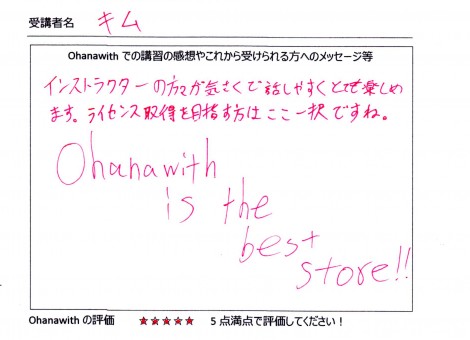 受講者名 キム
Ohanawith での講習の感想やこれから受けられる方へのメッセージ等
インストラクターの方々が気さくで話しやすくとても楽しめ
ます。ライセンス取得を目指す方はここ一択ですね。
Ohanawith
is the
best
store!!
Ohanawith の評価 ★★★★★ 5 点満点で評価してください！